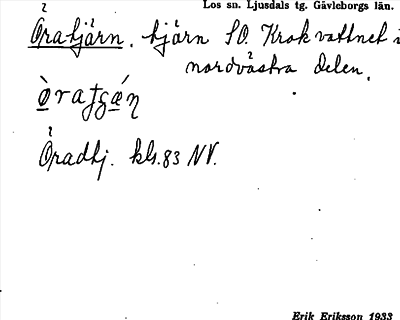 Los sn. Ljusdals tg. Gävleborgs län.
Öratjärn. tjärn SO. Krokvattnet i
nordvästra delen.
Öradtj. kls. 83 NV.
Erik Eriksson 1933